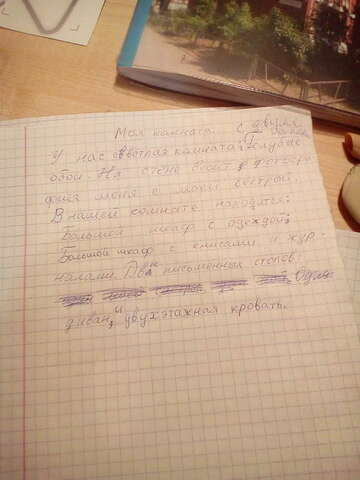 Моя комната. с двумя
У нас светлая комната; Голубые
обои. На стене висит фотогра-
фия меня с моей сестрой.
В нашей комнате находится:
Большой шкаф с одеждой;
Большой шкаф с книгами и жур-
налами. Два письменных столов;
диван, и двухэтажная кровать.